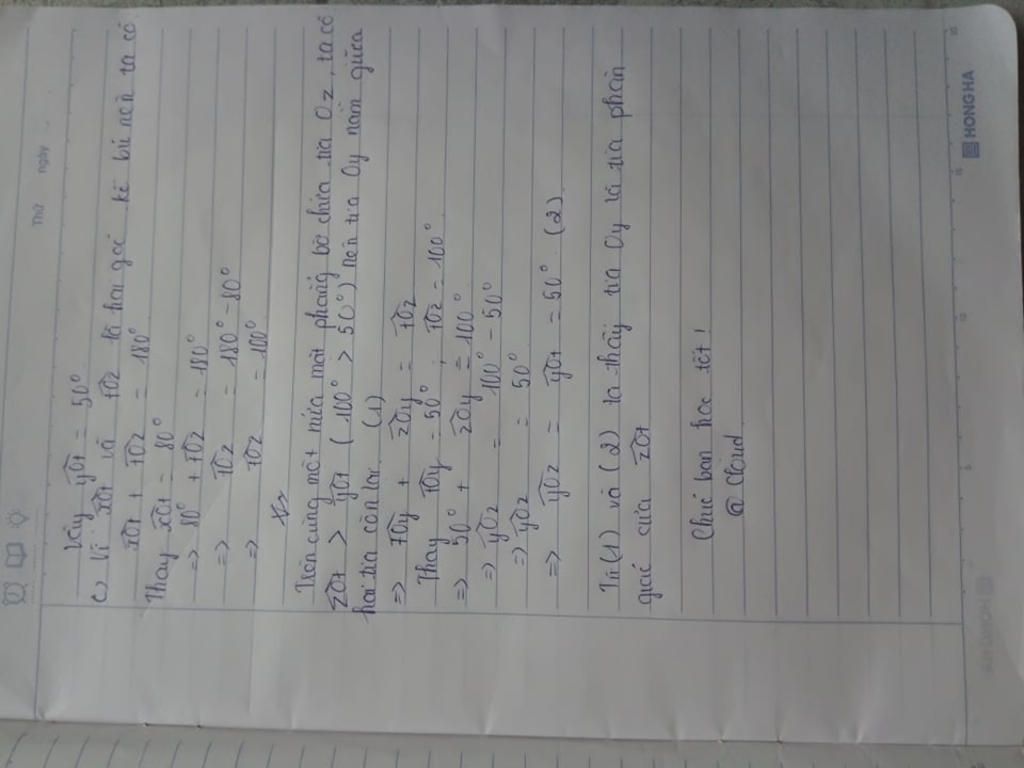 Thứ ngày
Vậy yOt = 50°
c) Vì xOt và tOz là hai góc kề bù nên ta có
xOt + tOz = 180°
Thay xOt = 80°
=> 80° + tOz = 180°
=> tOz = 180° - 80°
=> tOz = 100°
Trên cùng một nửa mặt phẳng bờ chứa tia Oz, ta có
zOt > yOt (100° > 50°) nên tia Oy nằm giữa
hai tia còn lại (1)
=> tOy + zOy = tOz
Thay tOy = 50° ; tOz = 100°
=> 50° + zOy = 100°
=> yOz = 100° - 50°
=> yOz = 50°
=> yOz = yOt = 50° (2)
Từ (1) và (2) ta thấy tia Oy là tia phân
giác của zOt
Chúc bạn học tốt!
@Cloud
HONG HA